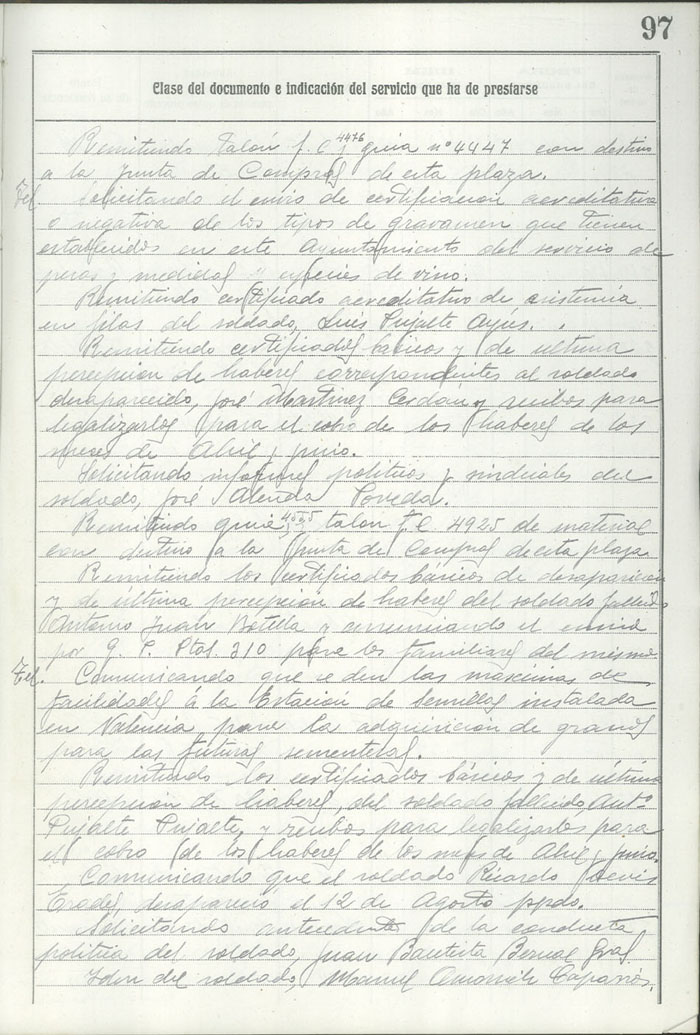 97
Clase del documento e indicación del servicio que ha de prestarse
Remitiendo talón f. C. 4476 y guia nº 4447 con destino
a la Junta de Compras de esta plaza.
Tel. Solicitando el envio de certificación acreditativa
o negativa de los tipos de gravamen que tienen
establecidos en este Ayuntamiento del servicio de
pesas y medidas y especies de vino.
Remitiendo certificado acreditativo de existencia
en filas del soldado, Luis Pujalte Ayús.
Remitiendo certificados básicos y de ultima
percepción de haberes correspondientes al soldado
desaparecido, José Martinez Cerdán y recibos para
legalizarlos para el cobro de los haberes de los
meses de Abril y junio.
Solicitando informes politicos y sindicales del
soldado, José Alenda Poveda.
Remitiendo guia 4555 talon f. C. 4925 de material
con destino a la Junta de Compras de esta plaza
Remitiendo los certificados básicos de desaparición
y de última percepción de haberes del soldado fallecido
Antonio Juan Botella y anunciando el envio
por G. P. Ptas. 310 para los familiares del mismo.
Tel. Comunicando que se den las maximas de
facilidades á la Estación de Semillas instalada
en Valencia para la adquisición de granos
para las futuras sementeras.
Remitiendo los certificados básicos y de última
percepción de haberes, del soldado fallecido, Antº
Pujalte Pujalte, y recibos para legalizarlos para
el cobro de los haberes de los meses de Abril y junio.
Comunicando que el soldado Ricardo
desaparecio el 12 de Agosto ppdo.
Solicitando antecedentes de la conducta
politica del soldado, Juan Bautista Bernal
Idem del soldado, Manuel Caparrós.